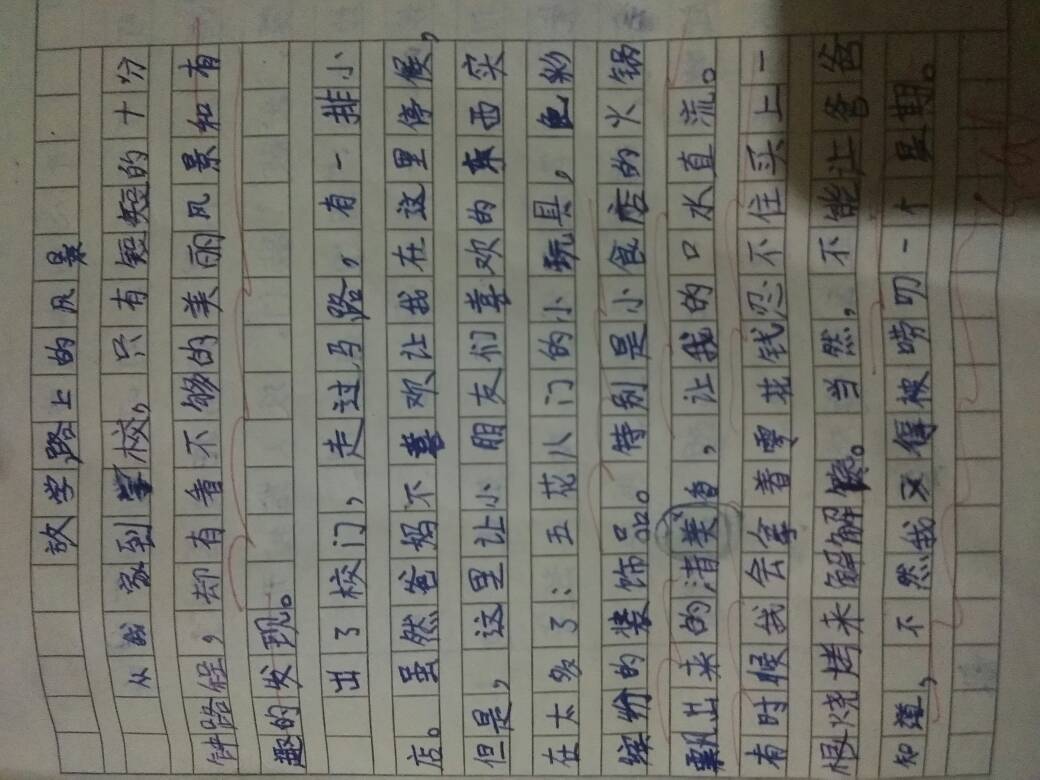 放学路上的风景
从我家到学校，只有短短的十分
钟路程，却有看不够的美丽风景和有
趣的发现。
出了校门，走过马路，有一排小
店。虽然爸妈不喜欢让我在这里停候，
但是，这里让小朋友们喜欢的东西实
在太多了：五花八门的小玩具，色彩
缤纷的装饰品。特别是小食店的火锅
飘出来的清香，让我的口水直流。
有时候我会拿着零花钱忍不住买上一
根烧烤来解解馋。当然，不能让爸爸
知道，不然我又得被唠叨一个星期。